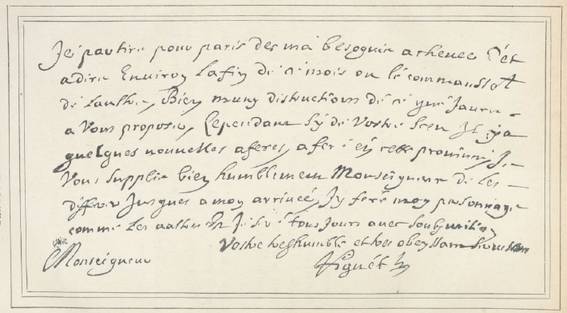 Je partire pour paris des ma besognie achevee C'et
adire Environ lafin de ci mois ou le commanssot
de lautre, Bien muny distructions de ci que jaure
a Vous proposer, Cependant sy de Vostre il ya
quelques nouvelles aferes, afere en cette province, Je
Vous supplie bien humblement Monseigneur de les
differer jusques a moy arrivee, Jy feré moy personnage
comme les autres Et je seré tousjours avec soubmition
Vostre tres humble et tres obeyssant
Monseigneur